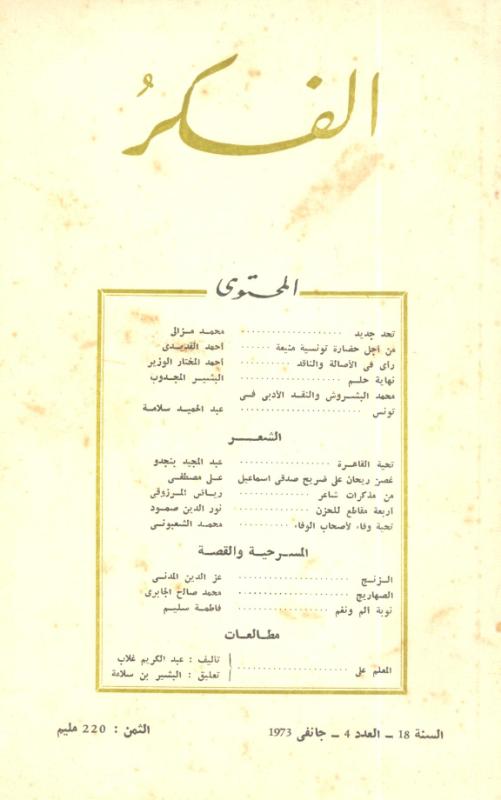 الفكرُ
المحتوى
تحد جديد .................... محمد مزالى
من أجل حضارة تونسية منيعة ...... أحمد القديدى
رأى فى الأصالة والناقد ........ أحمد المختار الوزير
نهاية حلم .................... البشير المجدوب
محمد البشروش والنقد الأدبى فى
تونس .................... عبد الحميد سلامة
الشعر
تحية القاهرة .................... عبد المجيد بنجدو
غصن ريحان على ضريح صدقى اسماعيل على مصطفى
من مذكرات شاعر ............ رياض المرزوقى
اربعة مقاطع للحزن ............ نور الدين صمود
تحية وفاء لأصحاب الوفاء ........ محمد الشعبونى
المسرحية والقصة
الزنج .................... عز الدين المدنى
الصهاريج .................... محمد صالح الجابرى
نوبة الم ونغم .................... فاطمة سليم
مطالعات
المعلم على .................... تاليف : عبد الكريم غلاب
تعليق : البشير بن سلامة
السنة 18 ــ العدد 4 ــ جانفى 1973 الثمن : 220 مليم